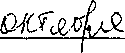 октября